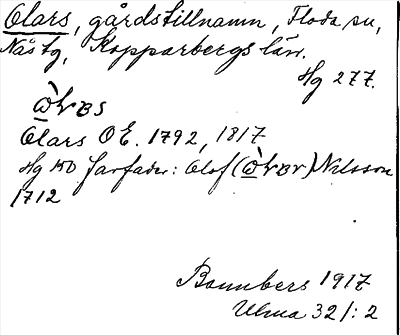 Olars, gårdstillnamn, Floda sn,
Nås tg, Kopparbergs län.
Hg 277.
Olars O E. 1792, 1817
Hg 150 Farfader: Olof () Nilsson
1712
Bonnbers 1917
Ulma 321:2